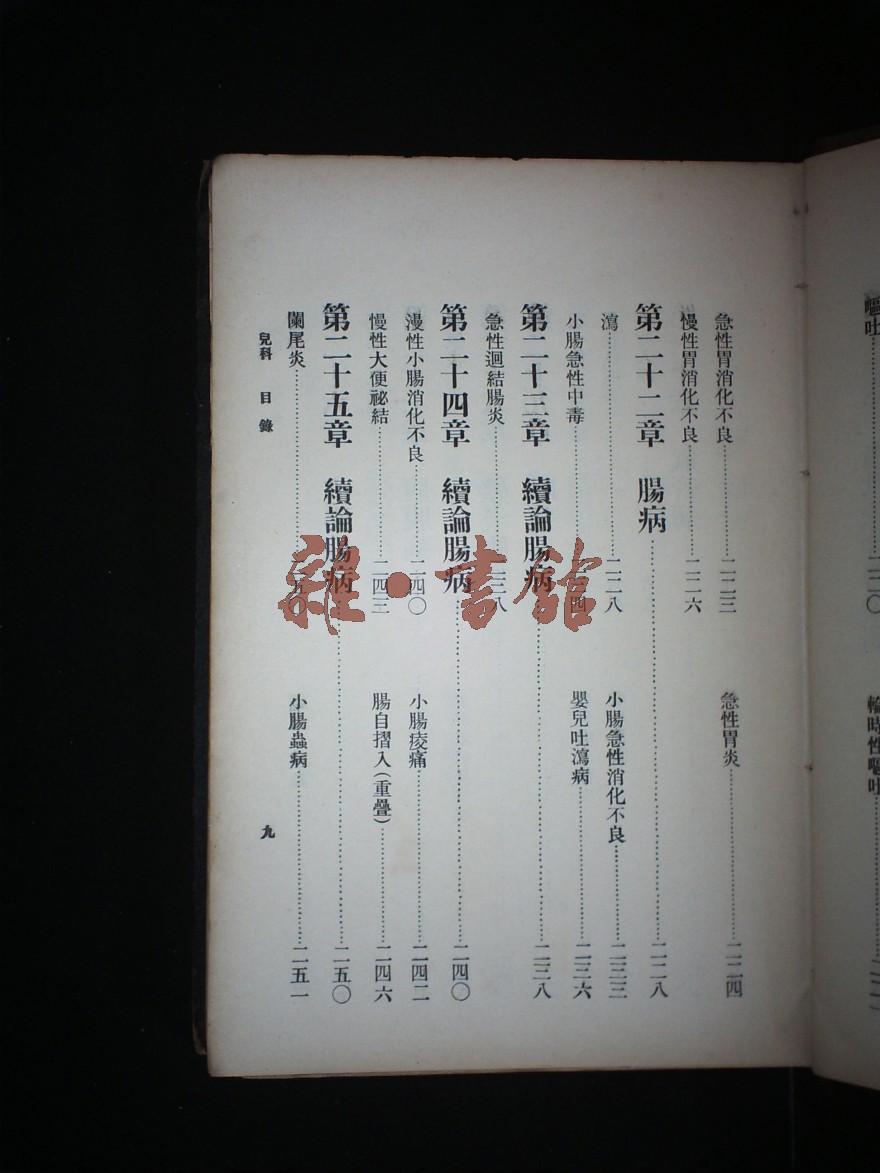 嘔吐……二二〇
輪時性嘔吐……
急性胃消化不良……二二三 急性胃炎……二二四
慢性胃消化不良……二二六
第二十二章 腸病……二二八
瀉……二二八 小腸急性消化不良……二三三
小腸急性中毒……二三四 嬰兒吐瀉病……二三六
第二十三章 續論腸病……二三八
急性迴結腸炎……二三八
第二十四章 續論腸病……二四〇
漫性小腸消化不良……二四〇 小腸痠痛……二四二
慢性大便祕結……二四三 腸自摺入(重疊)……二四六
第二十五章 續論腸病……二五〇
闌尾炎……二五〇 小腸蟲病……二五一
兒科 目錄 九
雜·書館